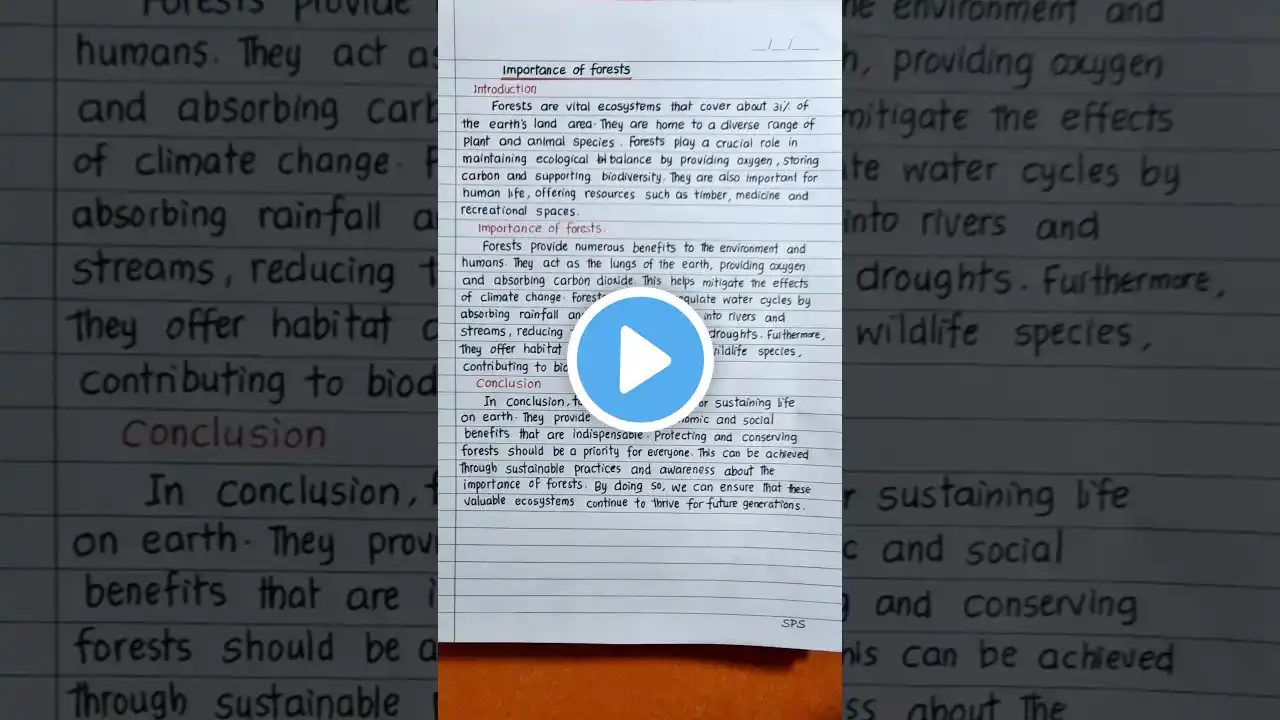 __/__/___
Importance of forests
Introduction
Forests are vital ecosystems that cover about 31% of
the earth's land area. They are home to a diverse range of
plant and animal species. Forests play a crucial role in
maintaining ecological balance by providing oxygen, storing
carbon and supporting biodiversity. They are also important for
human life, offering resources such as timber, medicine and
recreational spaces.
Importance of forests
Forests provide numerous benefits to the environment and
humans. They act as the lungs of the earth, providing oxygen
and absorbing carbon dioxide. This helps mitigate the effects
of climate change. water cycles by
absorbing rainfall into rivers and
streams, reducing droughts. Furthermore,
They offer habitat wildlife species,
contributing to
Conclusion
In conclusion, sustaining life
on earth. They provide and social
benefits that are indispensable. Protecting and conserving
forests should be a priority for everyone. This can be achieved
through sustainable practices and awareness about the
importance of forests. By doing so, we can ensure that these
valuable ecosystems continue to thrive for future generations.
SPS